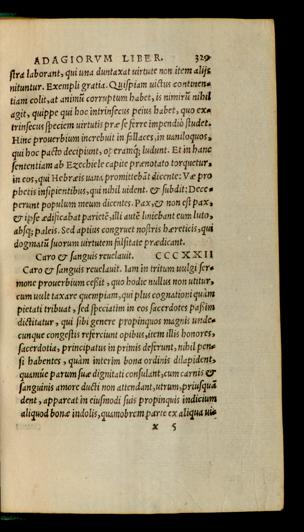 ADAGIORVM LIBER. 329
stra laborant, qui una duntaxat uirtute non item alijs
nituntur. Exempli gratia. Quispiam uictus continen-
tiam colit, at animũ corruptum habet, is nimirũ nihil
agit, quippe qui hoc intrinsecus peius habet, quo ex-
trinsecus speciem uirtutis præ se ferre impendiò studet.
Hinc prouerbium increbuit in fallaces, in uaniloquos,
qui hoc pacto decipiunt, os tamq́; ludunt. Et in hanc
sententiam ab Ezechiele capite prænotato torquetur,
in eos, qui Hebræis uana promittebãt dicente: Væ pro
phetis insipientibus, qui nihil uident. & subdit: Dece-
perunt populum meum dicentes. Pax, & non est pax,
& ipse ædificabat parietẽ, illi autẽ liniebant eum luto,
absq́; paleis. Sed aptius congruet nostris hæreticis, qui
dogmatũ suorum uirtutem falsitate prædicant.
Caro & sanguis reuelauit. CCCXXII
Caro & sanguis reuelauit. Iam in tritum uulgi ser-
mone prouerbium cessit, quo hodie nullus non utitur,
cum uult taxare quempiam, qui plus cognationi quàm
pietati tribuat, sed speciatim in eos sacerdotes passim
dictitatur, qui sibi genere propinquos magnis unde-
cunque congestis referciunt opibus, item illis honores,
sacerdotia, principatus in primis deferunt, nihil pen-
si habentes, quàm interim bona ordinis dilapident,
quamúe parum suæ dignitati consulant, cum carnis &
sanguinis amore ducti non attendant, utrum, priusquã
dent, appareat in eiusmodi suis propinquis indicium
aliquod bonæ indolis, quamobrem parte ex aliqua ui-
x 5